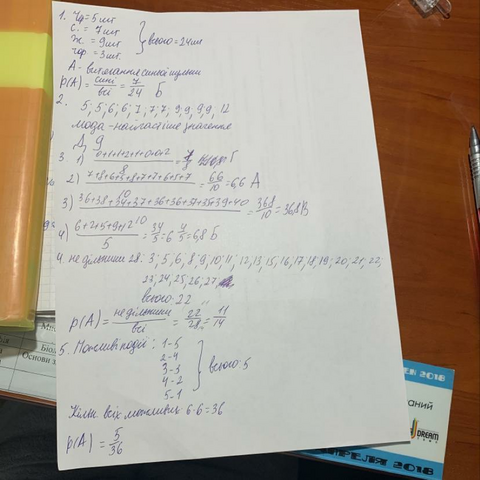 1. Чд = 5 шт
с. = 7 шт
ж = 9 шт
чор = 3 шт.
всього = 24 шт
А - витягання синьої кульки
P(A) = сині/всі = 7/24 Б
2. 5; 5; 6; 6; 7; 7; 7; 9; 9; 9; 9; 12
мода - найчастіше значення
Д 9
3. 1) /8
2) = 66/10 = 6,6 А
3) 36+38+34+37+36+36+37+35+39+40/10 = 368/10 = 36,8 В
4) 6+2+5+9+12/5 = 34/5 = 6 4/5 = 6,8 Б
4. не дільники 28: 3; 5; 6; 8; 9; 10; 11; 12; 13; 15; 16; 17; 18; 19; 20; 21; 22;
23; 24; 25; 26; 27
всього: 22
P(A) = не дільники/всі = 22/28 = 11/14
5. Можливі події: 1-5
2-4
3-3
4-2
5-1
всього: 5
Кільк всіх можливих 6·6 = 36
P(A) = 5/36
Основи з
2018
DREAM
АПРЕЛЯ 2018